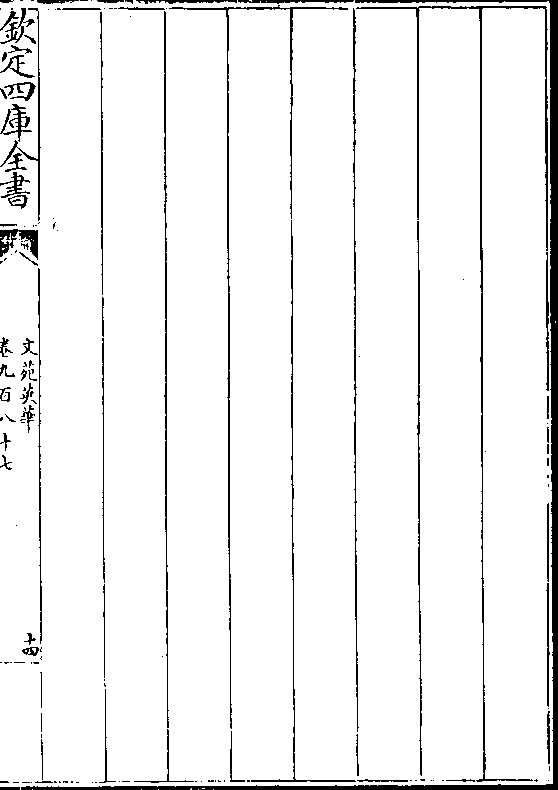 欽定四庫全書
文苑英華
卷九百八十七
十四